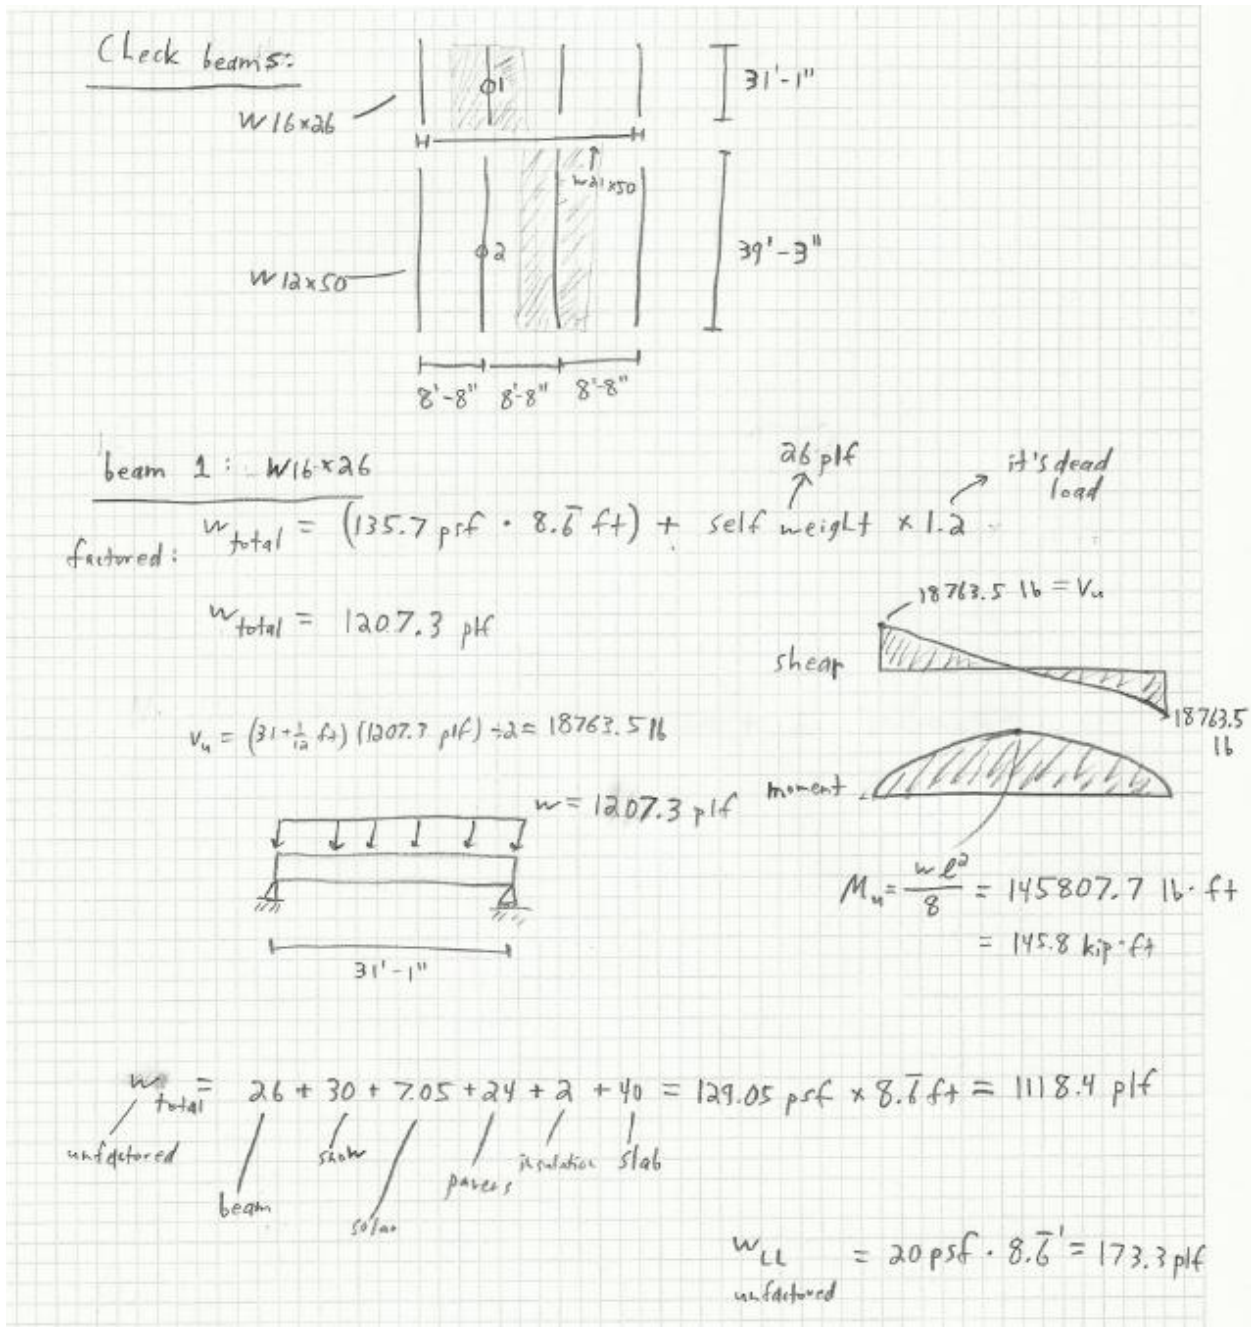 Check beams:
W16×26
01
31'-1"
W21×50
02
39'-3"
W12×50
8'-8" 8'-8" 8'-8"
beam 1: W16×26
26 plf
it's dead
load
factored: w total = (135.7 psf · 8.6̅ ft) + self weight × 1.2
w total = 1207.3 plf
18763.5 lb = Vu
shear
18763.5
lb
Vu = (31+1/12 ft) (1207.3 plf) ÷2 = 18763.5 lb
moment
w = 1207.3 plf
31'-1"
Mu = wℓ²/8 = 145807.7 lb·ft
= 145.8 kip·ft
w total = 26 + 30 + 7.05 + 24 + 2 + 40 = 129.05 psf × 8.6̅ ft = 1118.4 plf
unfactored
beam
snow
solar
pavers
insulation
slab
w LL = 20 psf · 8.6̅' = 173.3 plf
unfactored